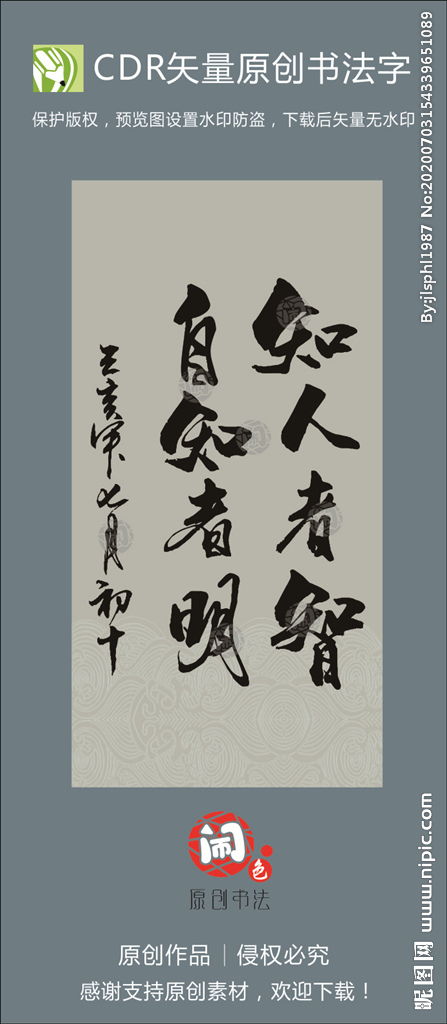 CDR矢量原创书法字
保护版权，预览图设置水印防盗，下载后矢量无水印
知人者智
自知者明
七月初十
闹色
原创书法
原创作品｜侵权必究
感谢支持原创素材，欢迎下载！
By:jlsphl1987 No:20200703154339651089
昵图网 www.nipic.com